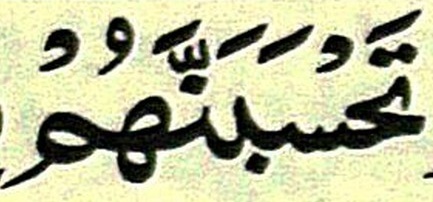 تَحْسَبَنَّهُمْ